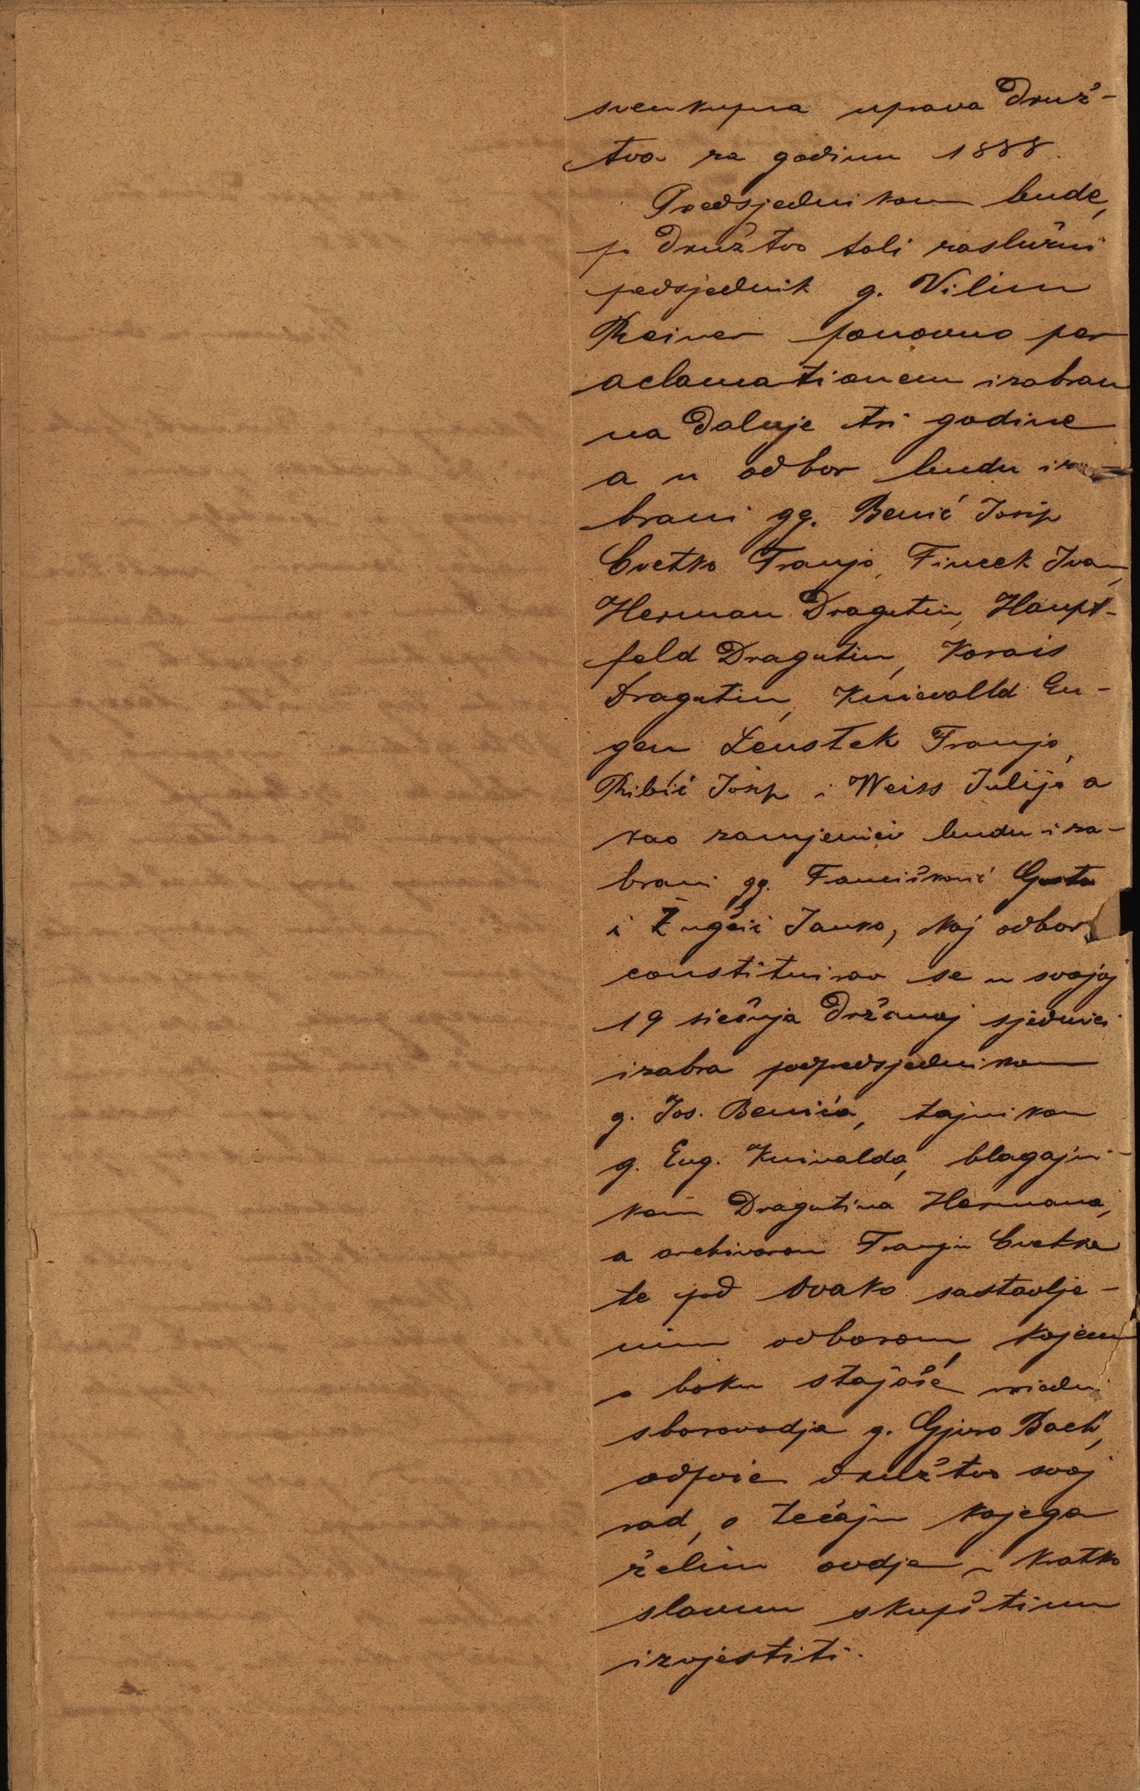 sveukupna uprava druž-
tva za godinu 1888.
Predsjednikom bude,
po družtvo toli zaslužni
pedsjednik g. Vilim
Reiner ponovno per
aclamationem izabran
na dalnje tri godine
a u odbor budu iza
brani gg. Benić Josip
Cvetko Franjo, Fincek Ivan,
Herman Dragutin, Haupt-
feld Dragutin, Korais
Dragutin, Knievalld Eu-
gen Leustek Franjo,
Ribić Josip i Weiss Julijo a
kao zamjenici budu iza-
brani gg. Fancišković
i Žugčić Janko, koj odbor
constituirav se u svojoj
19 siečnja držanoj sjednici
izabra podpedsjednikom
g. Jos. Benića, tajnikom
g. Eug. Knivalda, blagajni-
kom Dragutina Hermana,
a archivarom Franju Cvetka
te pod ovako sastavlje-
nim odborom, kojemu
o boku stajaše vriedni
sborovodja g. Gjuro Bach,
odpoče družtvo svoj
rad, o tečaju kojega
želim ovdje u kratko
slavnu skupštinu
izvjestiti.